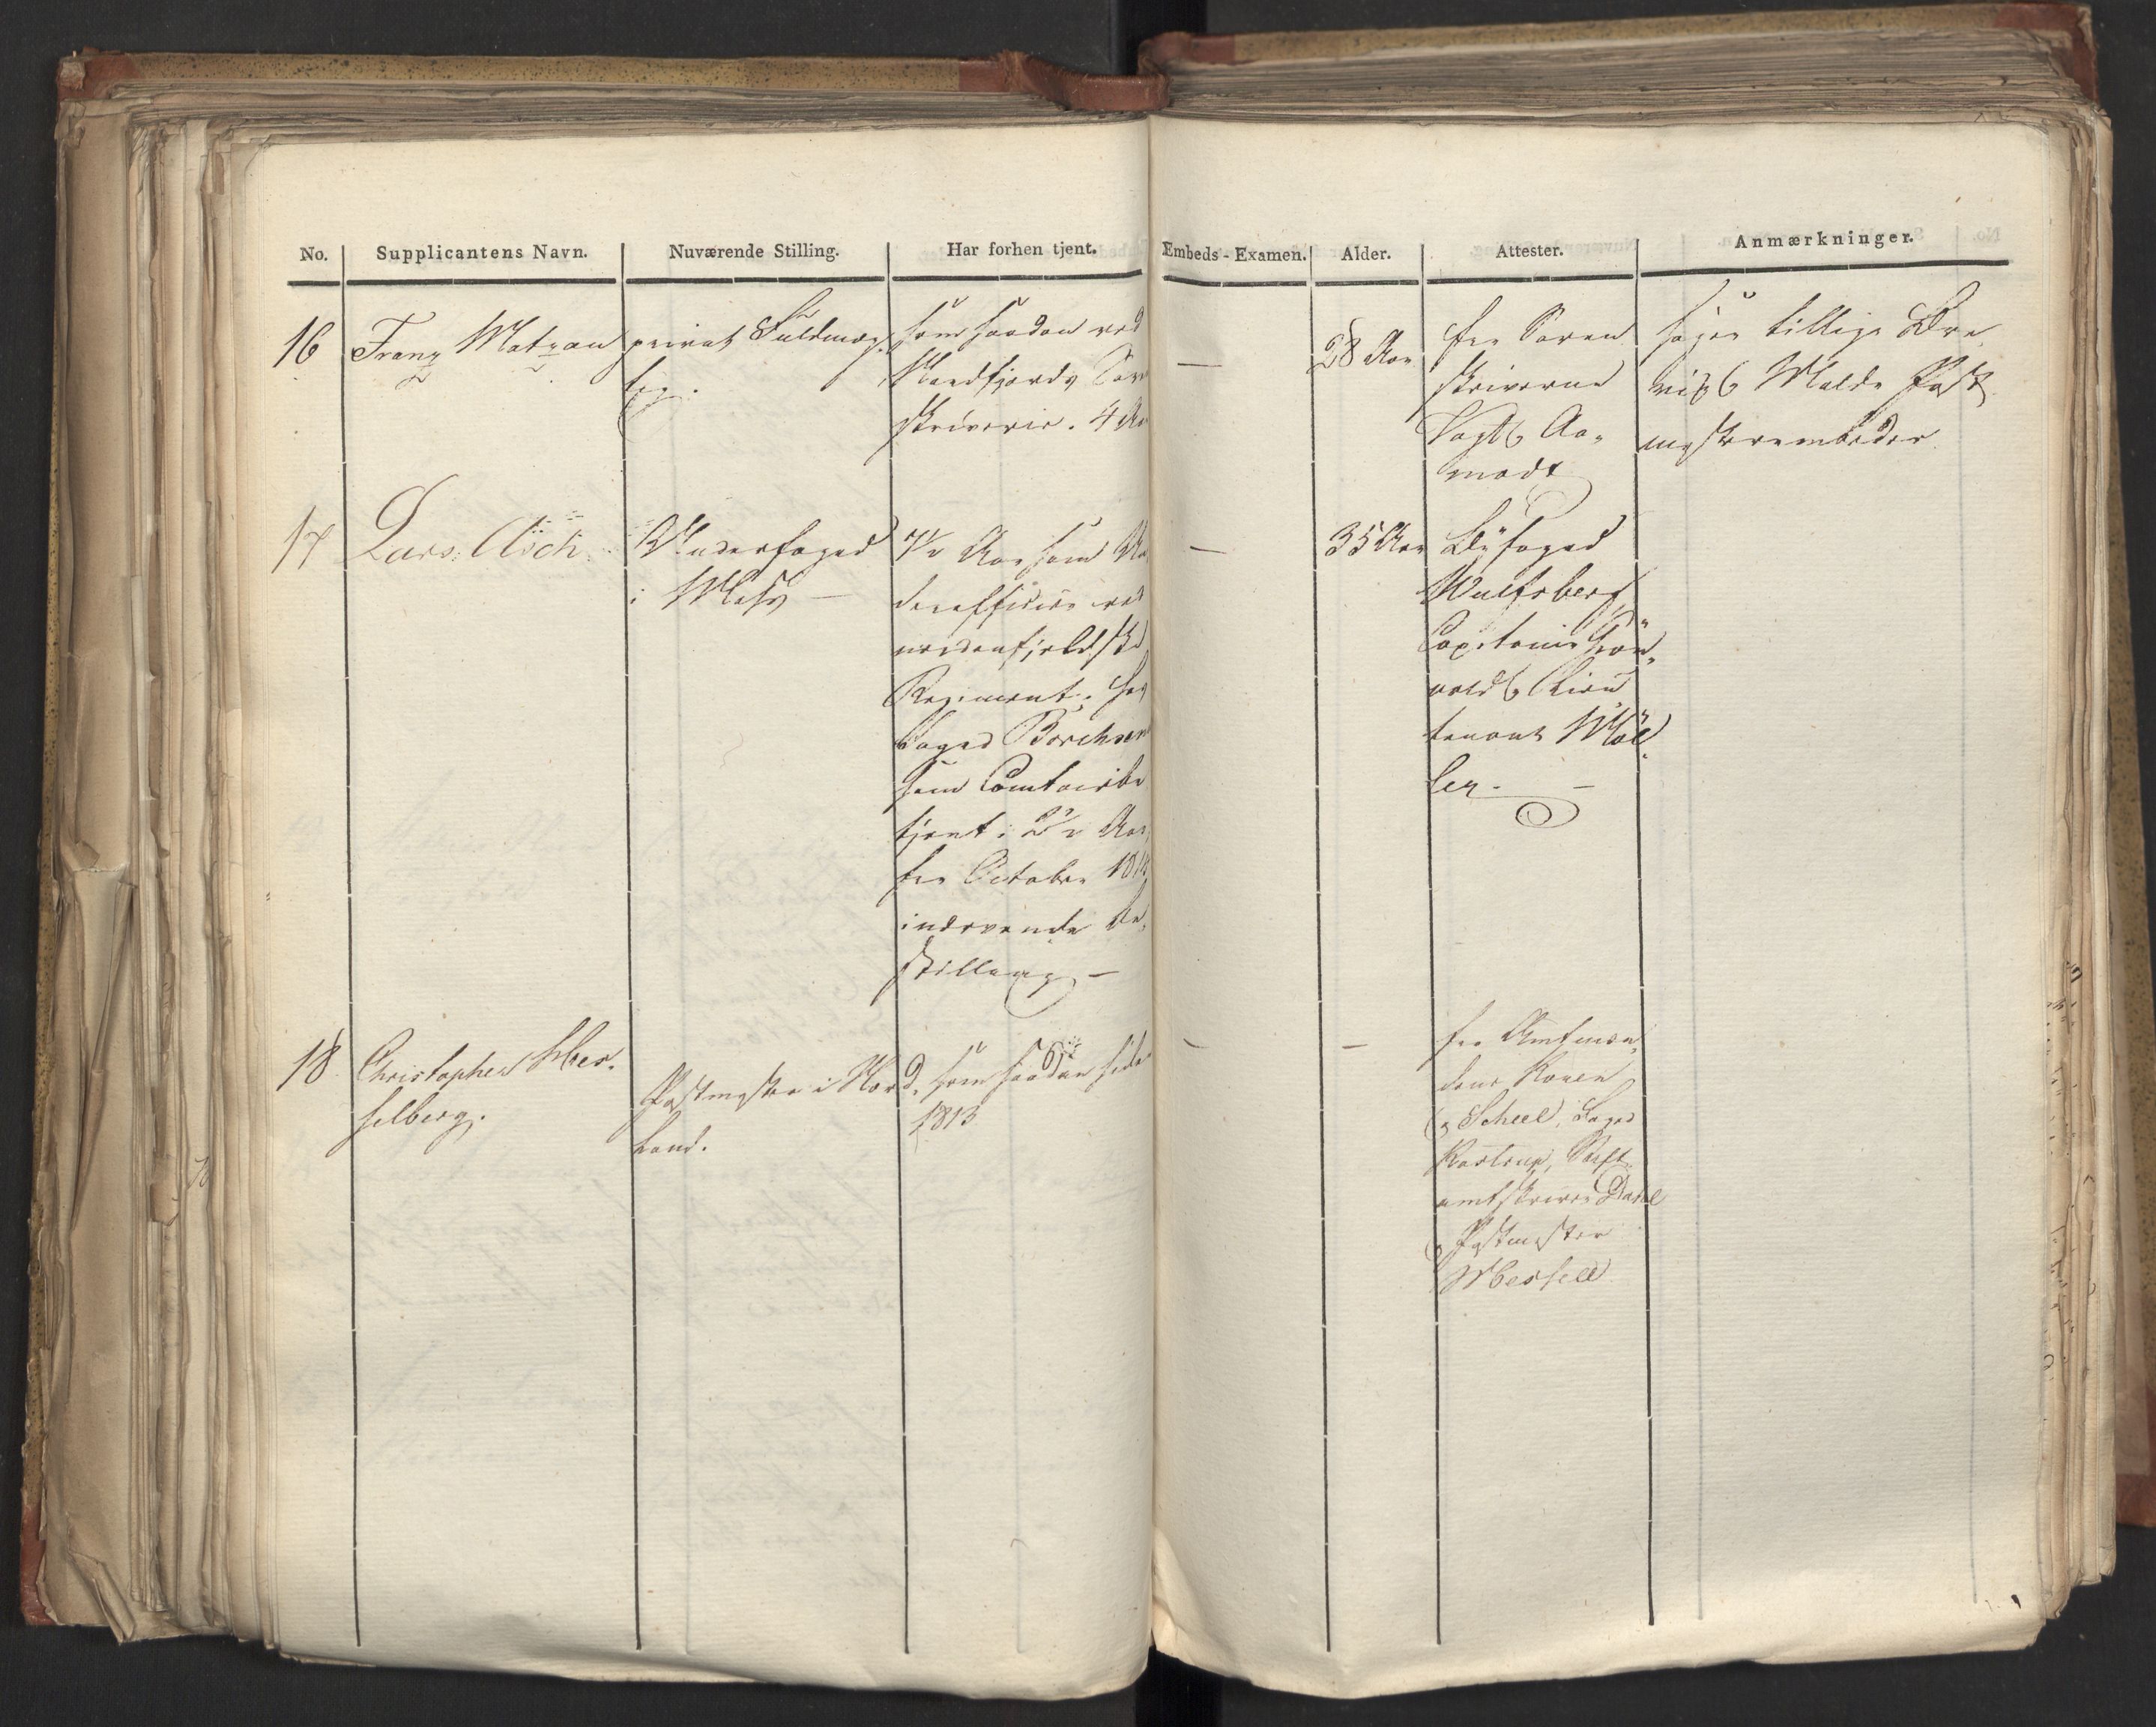 No. Supplicantens Navn. Nuværende Stilling. Har forhen tjent. Embeds-Examen. Alder. Attester. Anmærkninger.
16 Franz Matzau
privat Fuldmæg-
tig.
som saadan ved
Skriverie. 4 Aar
—
28 Aar
fra Soren
skriverne
Vogt og Aa-
modt
søger tillige Dra
Molde Post
mesterembeder
17 Lars Asch
Underfoged
i Moss —
Aar som Un
derofficier ved
nordenfjeldske
Regiment; hos
Foged Borchsen
som Contoirbe
tjent i 2½ Aar
fra October
indevende Be-
stilling —
—
35 Aar
Byfoged
Wulfsberg
Capitaine Grön-
vold og Lieu
tenant Möl-
ler. —
18 Christopher Mes-
selberg.
Postmester i Nord-
land.
som saadan siden
1813
—
—
fra Amtmæn-
dene Koren
og Scheel, Foged
Kastrup, Stift
amtskriver Dahl
og Postmester
Messell